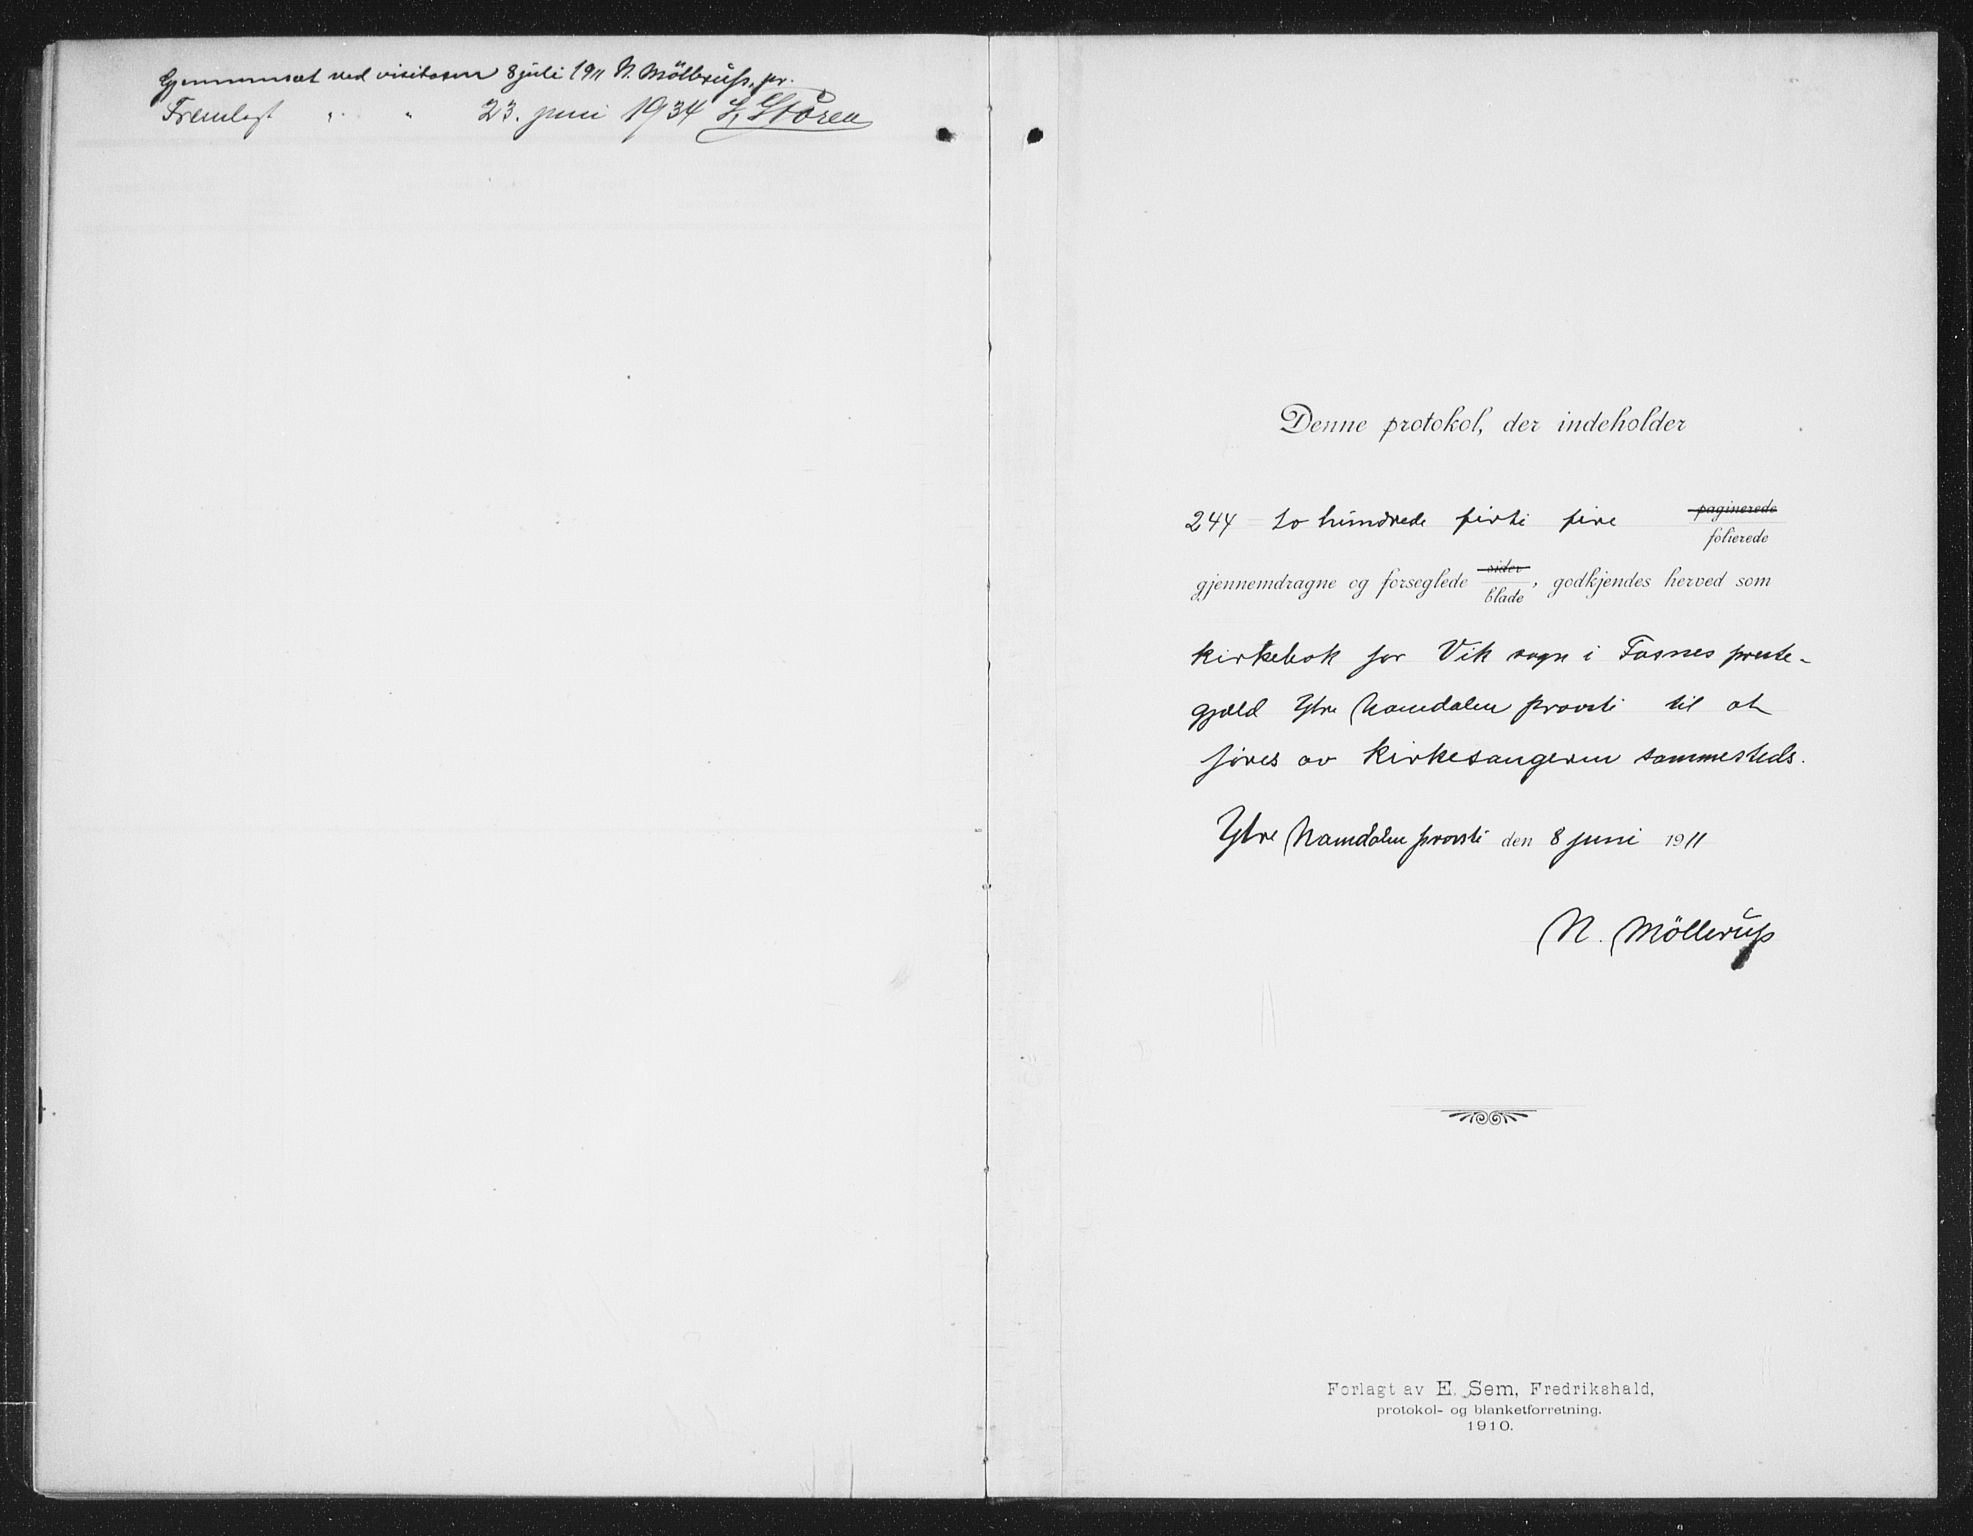 Gjennemset ved visitasen 8 juli 1911 N. Möllerup, pr.
Fremlagt " " 23. juni 1934 Støren
Denne protokol, der indeholder
244 to hundrede firti fire paginerede
folierede
gjennemdragne og forseglede sider
blade, godkjendes herved som
kirkebok for Vik sogn i Fosnes preste-
gjæld Ytre Namdalen provsti til at
føres av kirkesangeren sammesteds.
Ytre Namdalen provsti den 8 juni 1911
N. Möllerup
Forlagt av E. Sem, Fredrikshald,
protokol- og blanketforretning.
1910.